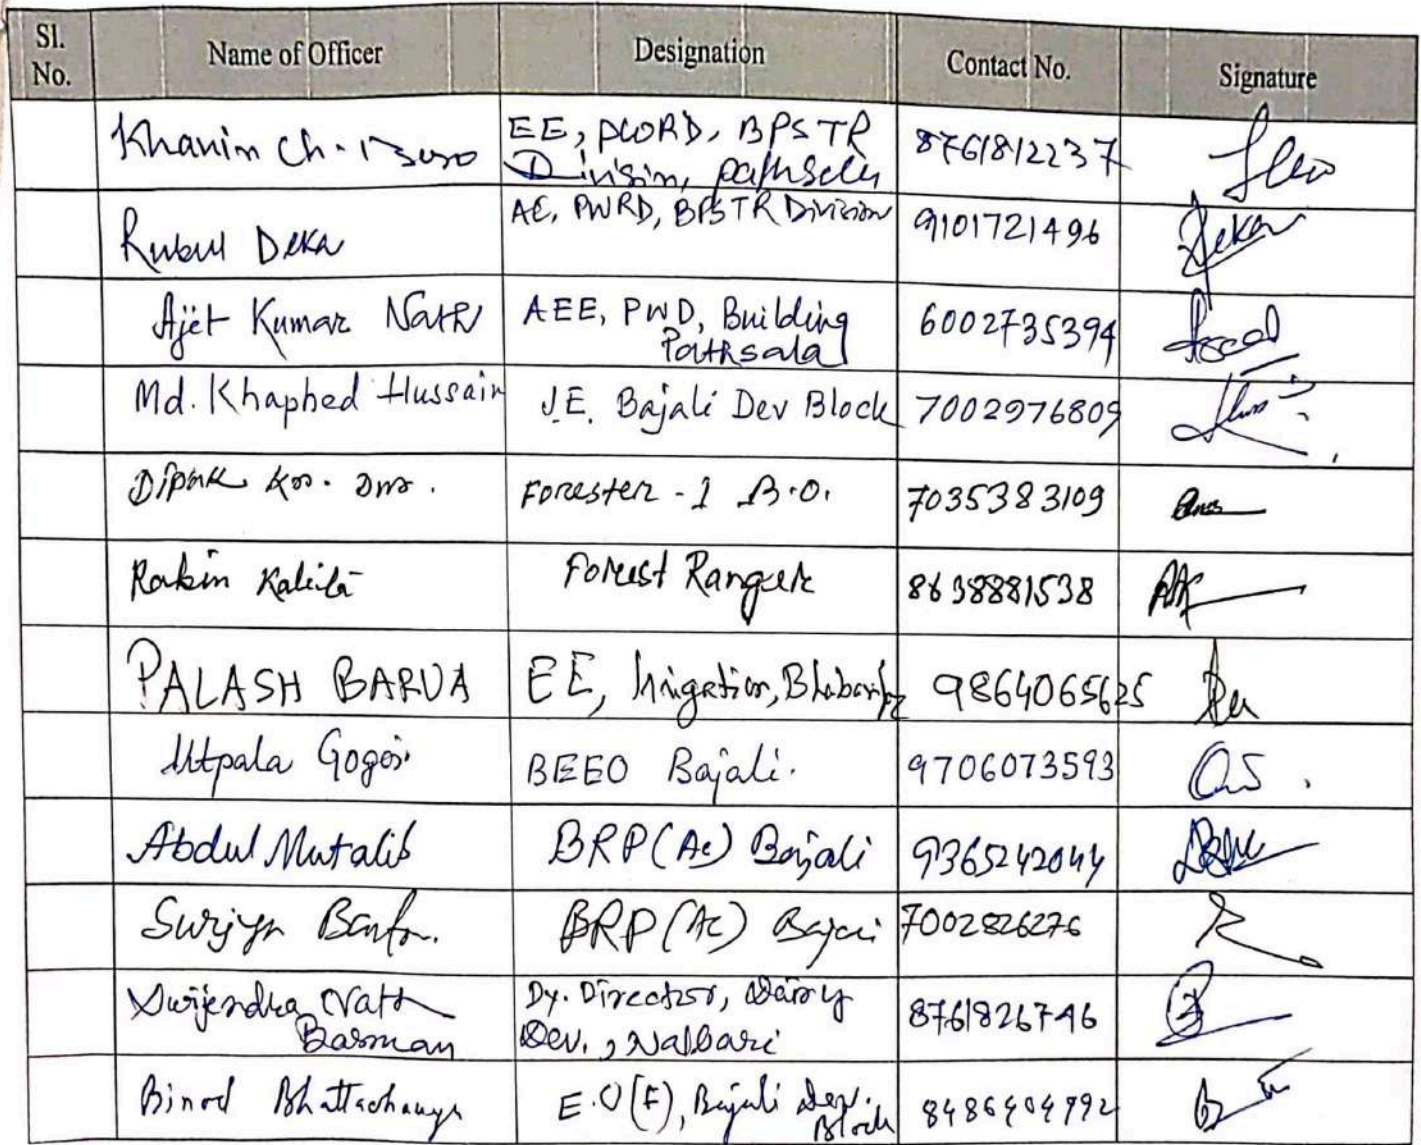 Sl. No. Name of Officer Designation Contact No. Signature
Khanin Ch. Boro EE, PWRD, BPSTR 8761812237
Division, pathsala
Rubul Deka AE, PWRD, BPSTR Division 9101721496 Deka
Ajit Kumar Nath AEE, PWD, Building 6002735394
Pathsala
Md. Khaphed Hussain J.E. Bajali Dev Block 7002976809
Dipak Kr. Das. Forester - 1 B.O. 7035383109
Rabin Kalita Forest Ranger 8638881538
PALASH BARUA EE, Irrigation, 9864065625
Utpala Gogoi BEEO Bajali. 9706073593
Abdul Mutalib BRP (Ac) Bajali 9365242044
Surjya BRP (Ac) Bajali 7002826276
Surjendra Nath Dy. Director, Dairy 8761826746
Barman Dev., Nalbari
Binod Bhattacharya E.O (F), Bajali Dev. 8486404992
Block